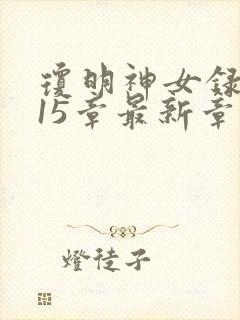 瓊明神女錄
15章最新章
燈徒子